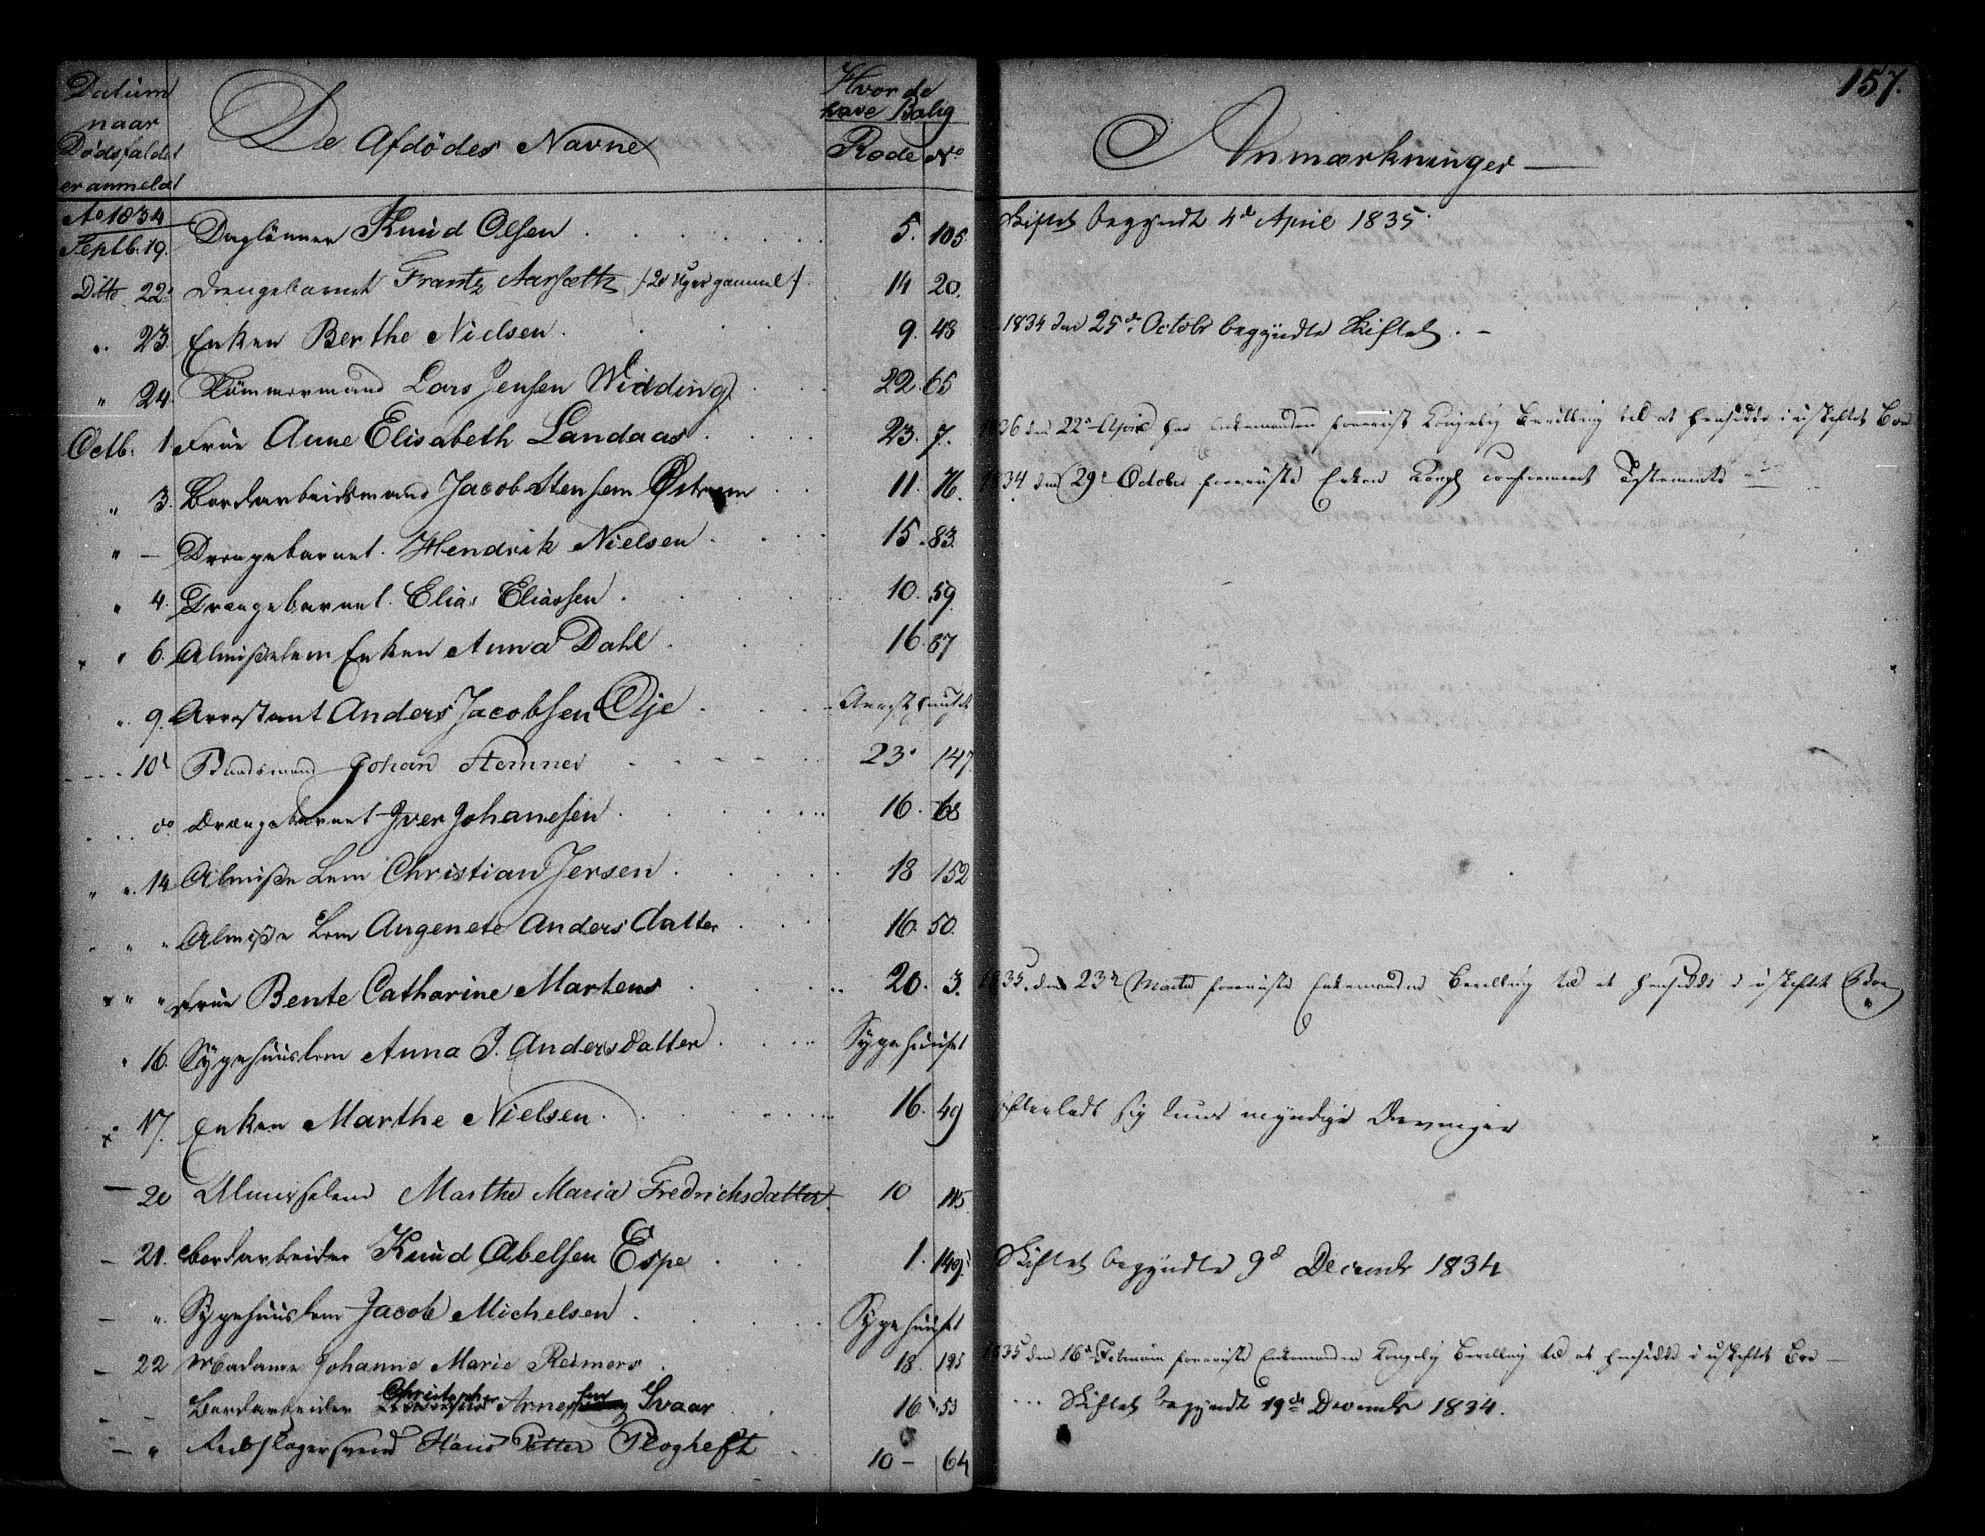 157.
Datum naar Dødsfaldet er anmeldt
De Afdødes Navne
Hvor de have Bolig
Rode No
Anmærkninger
Ao 1834
Septb. 19. Daglönner Knud Olsen 5. 105. Skiftet begyndt 4d April 1835.
Ditto 22d Drengebarnet Frantz Aarsæth /20 Uger gammel/. 14 20.
" 23. Enken Berthe Nielsen. 9. 48 1834 den 25de Octobr begyndte Skiftet.
" 24. Tömmermand Lars Jensen Widding 22. 65
Octb. 1 Frue Anne Elisabeth Landaas 23. 7. 1836 den 22d April har Enkemanden foreviist Kongelig Bevilling til at hensidde i uskiftet Boe
" 3. Bordarbeidsmand Jacob Stensen Østrem 11. 76. 1834 den 29d October foreviiste Enken Kongl confirmeret Testamente
" — Drengebarnet Hendrik Nielsen 15. 83.
" 4. Drengebarnet Elias Eliassen 10. 59
" 6. Almisselem Enken Anna Dahl 16. 37
" 9. Arrestant Anders Jacobsen Øje Arresthuuset
10d Baadsmand Johan Stenner 23. 147.
do Drængebarnet Iver Johanesen 16. 68
" " 14 Almisse Lem Christian Jersen 18 152
" " Almisse Lem Augenete Andersdatter 16. 50.
" " " Frue Bente Catharine Martens 20. 3. 1835. den 23d Martii foreviiste Enkemanden Bevilling til at hensidde i uskiftet Boe
" 16. Sygehuuslem Anna J. Andersdatter Sygehuuset
17. Enken Marthe Nielsen. 16. 49 efterladt sig kuns myndige Arvinger
— 20 Almisselem Marthe Maria Fredrichsdatter. 10 115.
— 21. Bordarbeider Knud Abelsen Espe 1. 149. Skiftet begyndte 9d Decembr 1834
— " Sygehuuslem Jacob Michelsen Sygehuuset
— 22 Madame Johanne Marie Reimers 18. 195 1835 den 16d Februar foreviiste Enkemanden Kongelig Bevilling til at hensidde i uskiftet Boe —
Bordarbeider Christopher Arnessen Svaar 16 53 Skiftet begyndt 19de Decembr 1834.
— " Reebslagersvend Hans Petter Plogheft 10 — 64